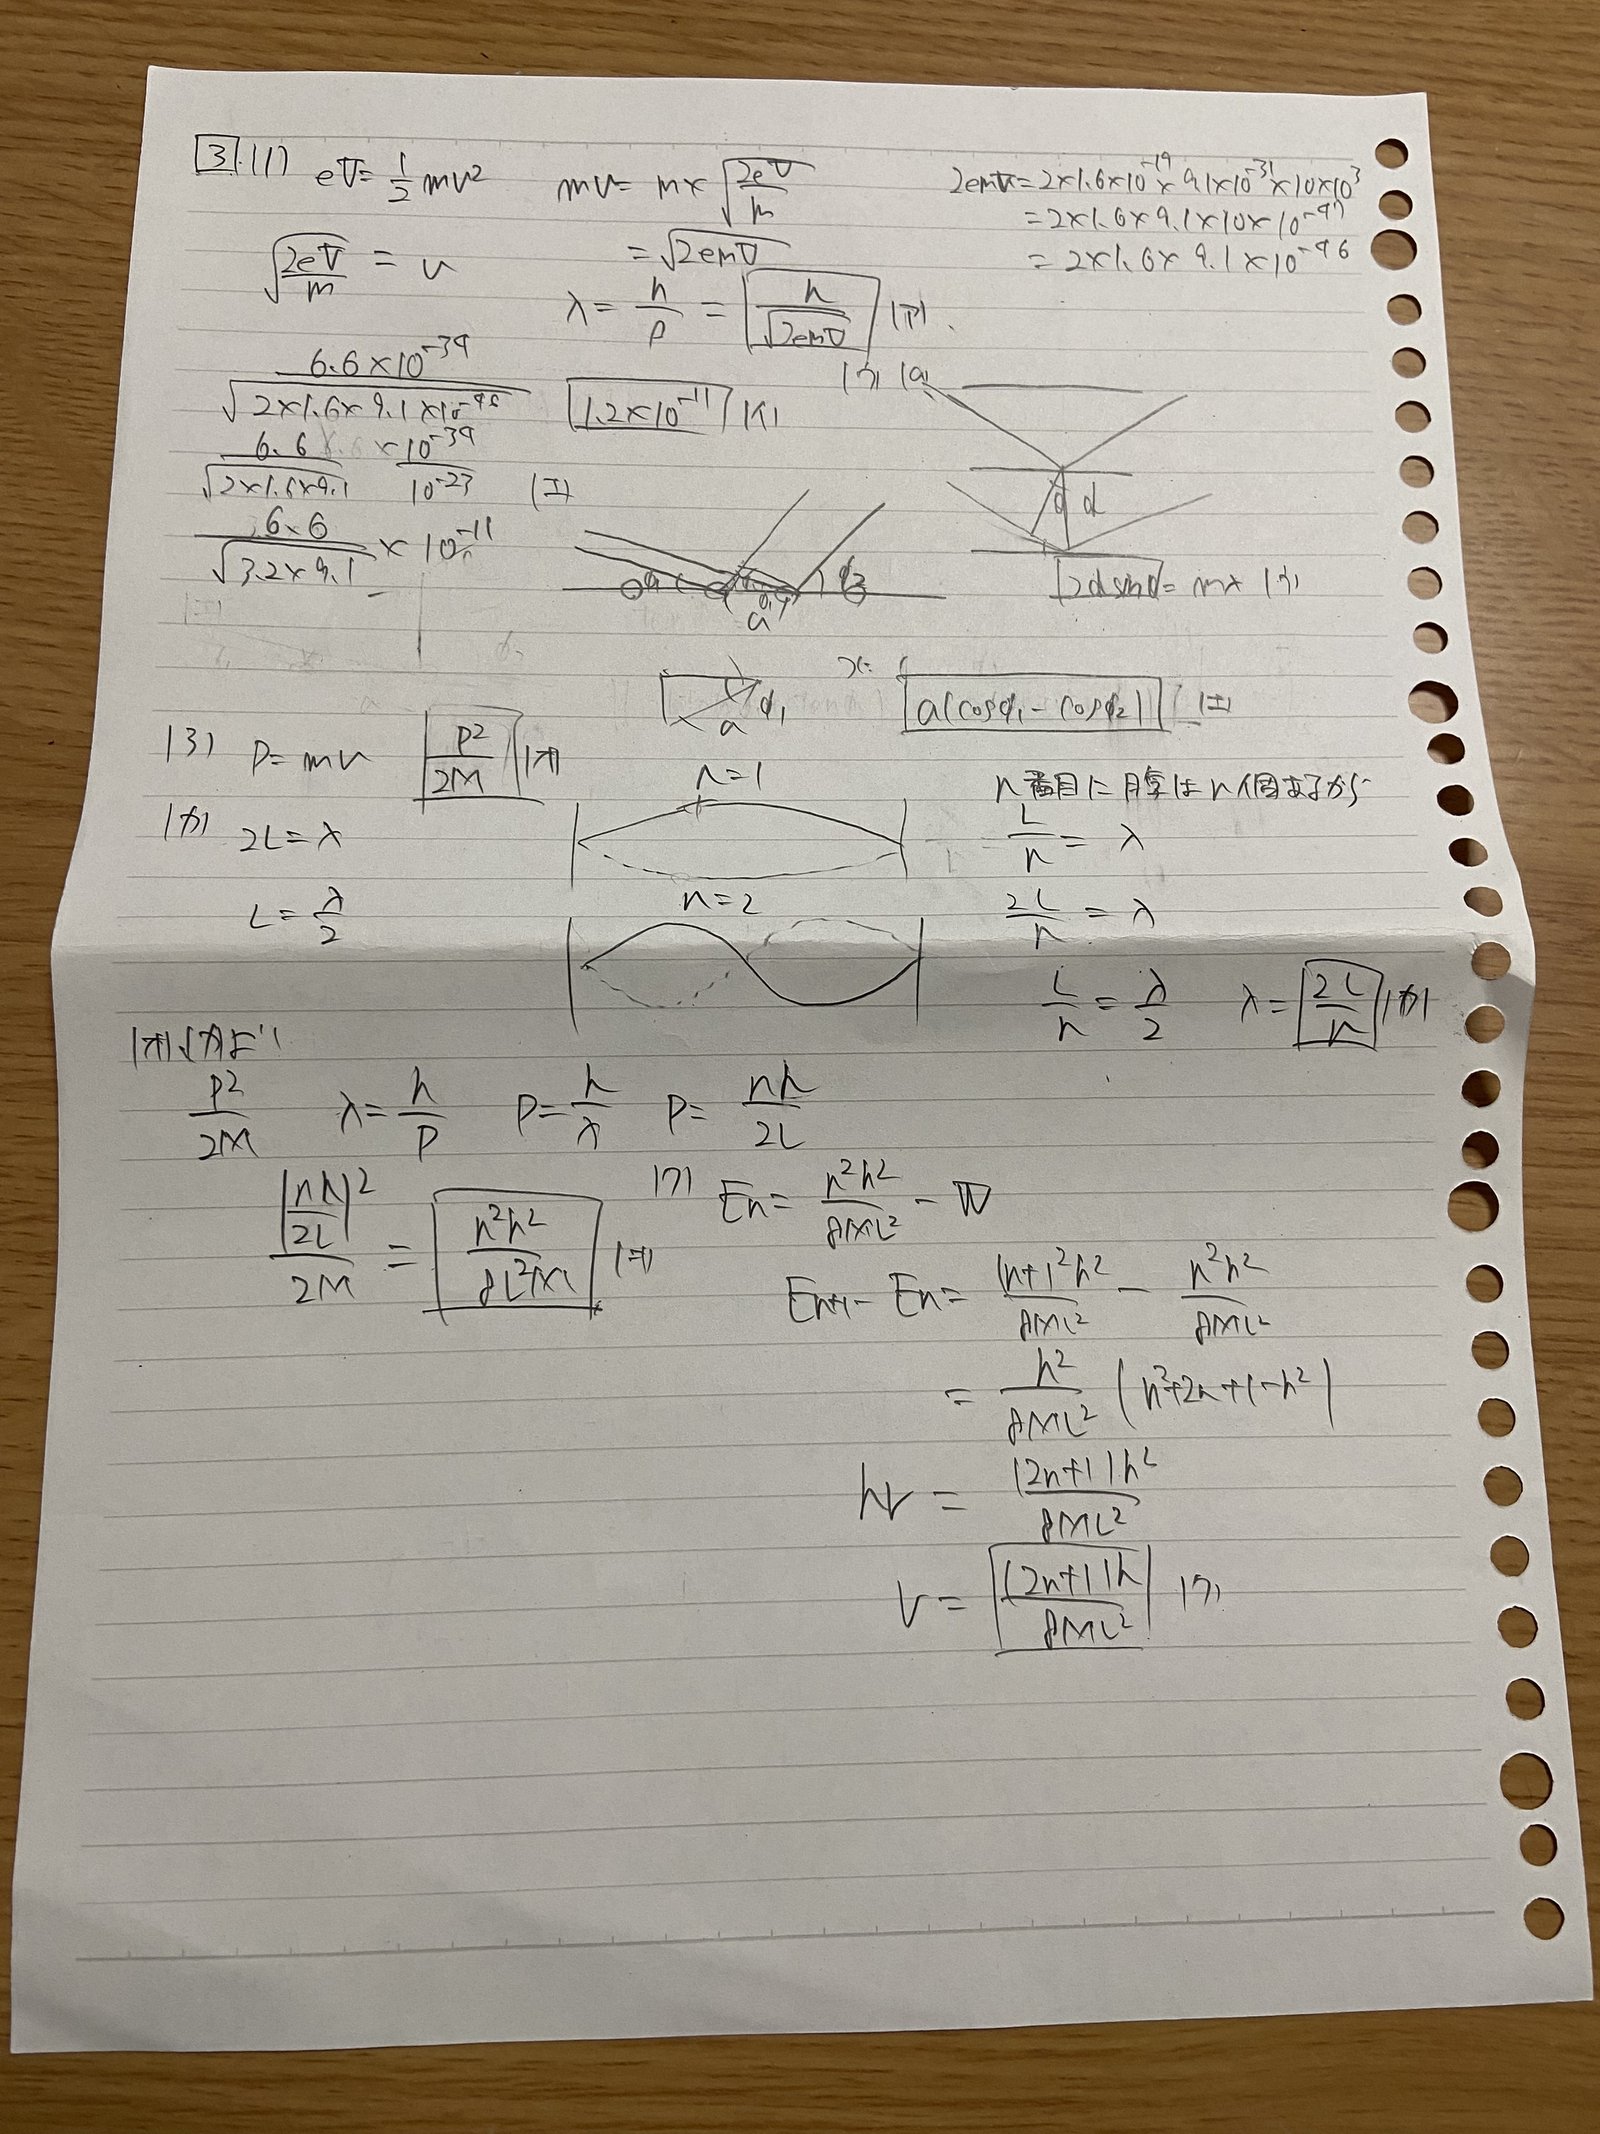 3 (1) eV = 1/2 mv²
√(2eV/m) = v
mv = m × √(2eV/m)
= √2emV
λ = h/p = h/√2emV (ア)
2emV = 2×1.6×10⁻¹⁹×9.1×10⁻³¹×10×10³
= 2×1.6×9.1×10×10⁻⁴⁷
= 2×1.6×9.1×10⁻⁴⁶
6.6×10⁻³⁴/√(2×1.6×9.1×10⁻⁴⁶)
1.2×10⁻¹¹ (イ)
6.6/√(2×1.6×9.1) × 10⁻³⁴/10⁻²³
6.6/√(3.2×9.1) × 10⁻¹¹
(ウ) (a)
d
2d sinφ = mλ (ウ)
(エ)
a
a φ₁
a(cosφ₁ - cosφ₂) (エ)
(3) P = mv P²/2M (オ)
(カ) 2L = λ
L = λ/2
n=1
n=2
n番目に腹はn個あるから
L/n = λ
2L/n = λ
L/n = λ/2 λ = 2L/n (カ)
(オ),(カ)より
P²/2M λ = h/P P = h/λ P = nh/2L
(nh/2L)²/2M = n²h²/8L²M (キ)
(ク) En = n²h²/8ML² - W
En+1 - En = (n+1)²h²/8ML² - n²h²/8ML²
= h²/8ML² (n²+2n+1-n²)
hν = (2n+1)h²/8ML²
ν = (2n+1)h/8ML² (ク)